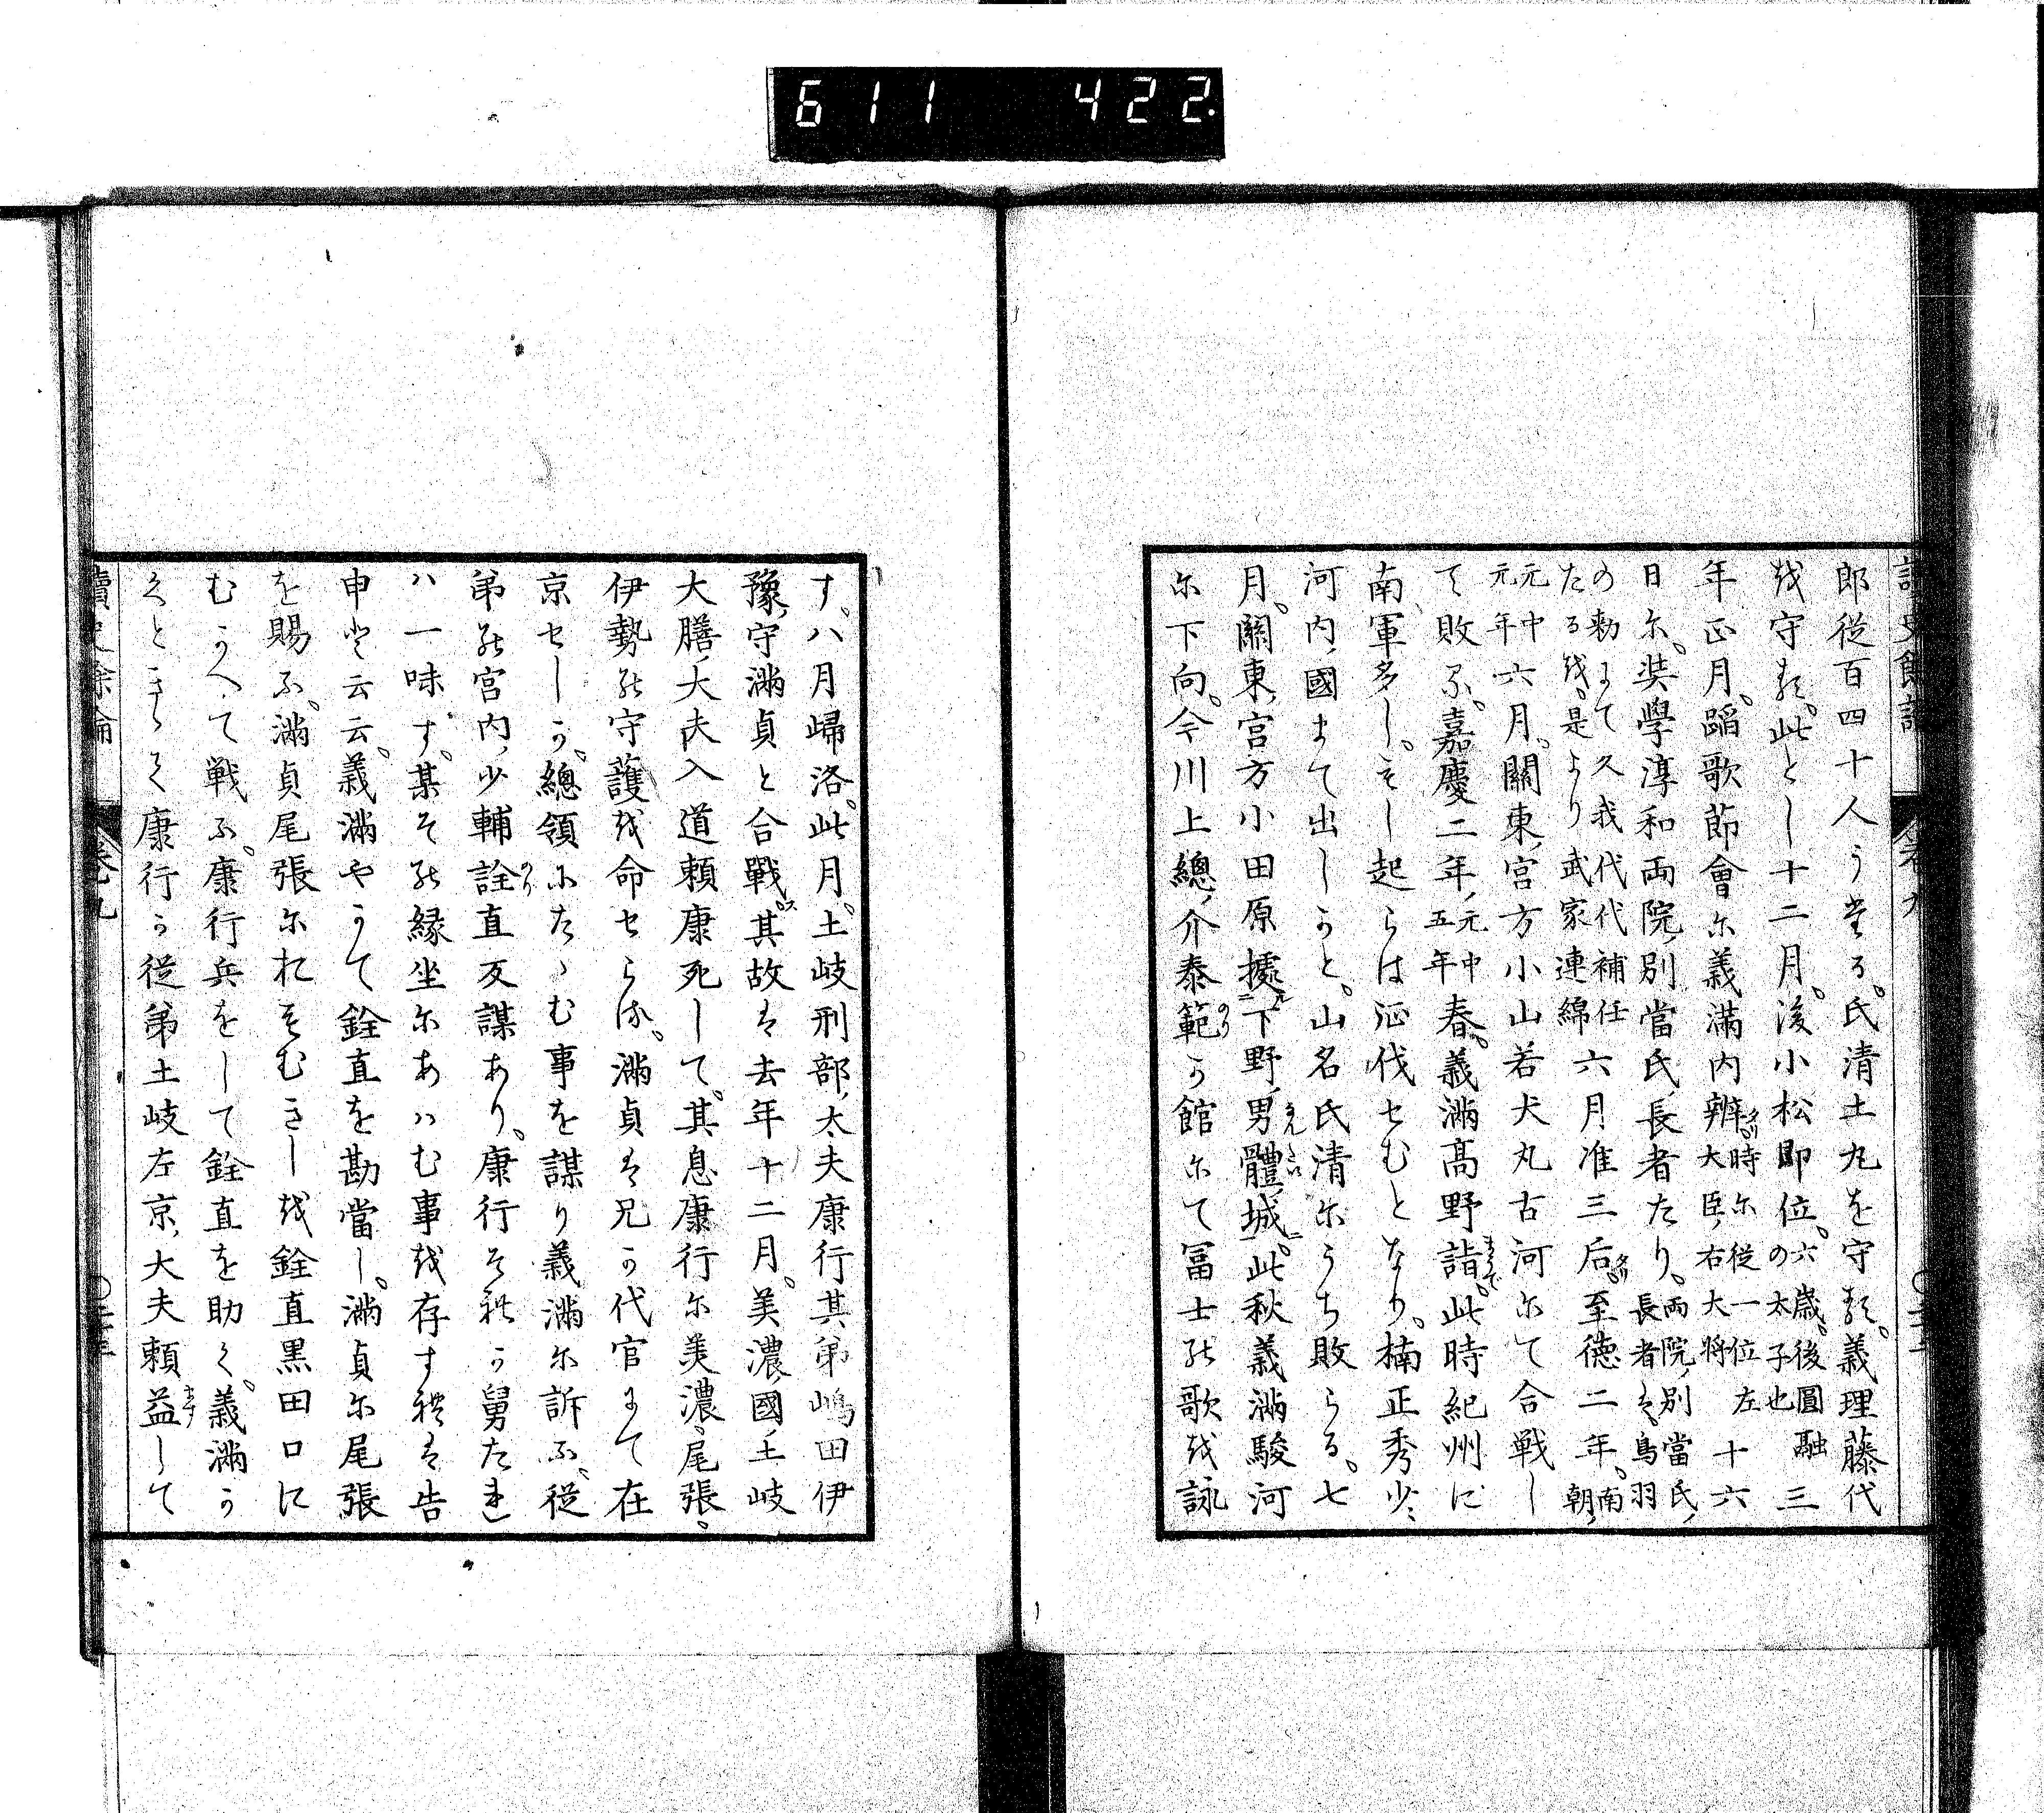 611 422.
郎從百四十人うたる。氏清土丸を守る。義理藤代
を守る。此とし十二月。後小松即位。六歳。後圓融の太子也三
年正月。蹈歌節會に義滿内辨時に從一位左大臣、右大将十六
日に。奨學淳和両院、別當氏、長者たり。両院、別當氏、長者は、鳥羽
の勅にて久我代代補任たるを。是より武家連綿六月准三后。至徳二年。南朝、
元中元年六月。關東、宮方小山若犬丸古河にて合戦し
て敗ふ。嘉慶二年、元中五年春。義滿髙野詣。此時紀州に
南軍多し。もし起らは征伐せむとなり。楠正秀少、
河内、國まて出しかと。山名氏清にうち敗らる。七
月。關東、宮方小田原據下野、男體、城。此秋義滿駿河
に下向。今川上總、介泰範か館にて冨士の歌を詠
す。八月歸洛。此月。土岐刑部、太夫康行其弟嶋田伊
豫、守滿貞と合戰ス。其故は去年十二月。美濃、國、土岐
大膳、大夫入道頼康死して。其息康行に美濃、尾張。
伊勢の守護を命せらる。滿貞は兄か代官にて在
京せしか。總領にたゝむ事を謀り義滿に訴ふ。從
弟の宮内、少輔詮直反謀あり。康行それか舅たれ
ハ一味す。某その縁坐にあハむ事を存す禮は告
申と云云。義滿やかて銓直を勘當し。滿貞に尾張
を賜ふ。滿貞尾張におもむきしを銓直黒田口に
むかへて戦ふ。康行兵をして銓直を助く。義滿か
くときゝて康行か從弟土岐左京、大夫頼益して
讀史餘論 卷九